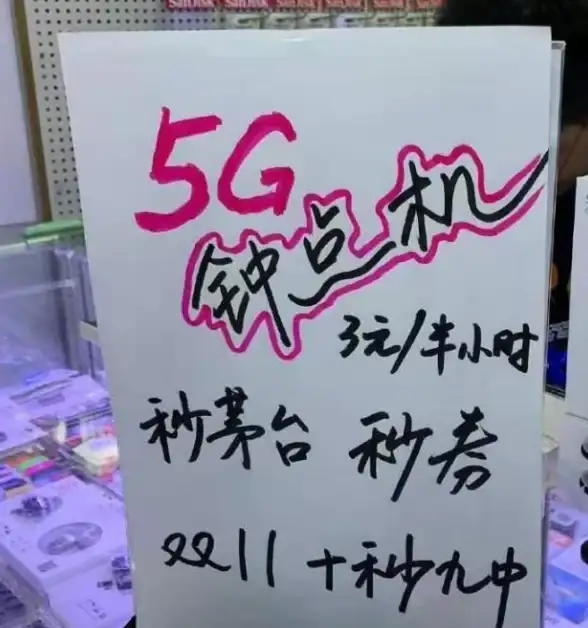 SanDisk SanDisk
5G
钟点机
3元/半小时
秒茅台 秒券
双11 十秒九中